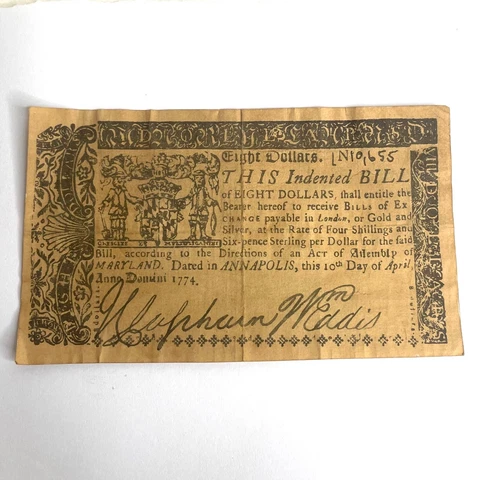 Eight Dollars. N10,655
THIS Indented BILL
of EIGHT DOLLARS, shall entitle the
Bearer hereof to receive BILLS of EX-
CHANGE payable in London, or Gold and
Silver, at the Rate of Four Shillings and
Six-pence Sterling per Dollar for the said
Bill, according to the Directions of an Act of Assembly of
MARYLAND. Dated in ANNAPOLIS, this 10th Day of April,
Anno Domini 1774.
J Clapham Wm Eddis